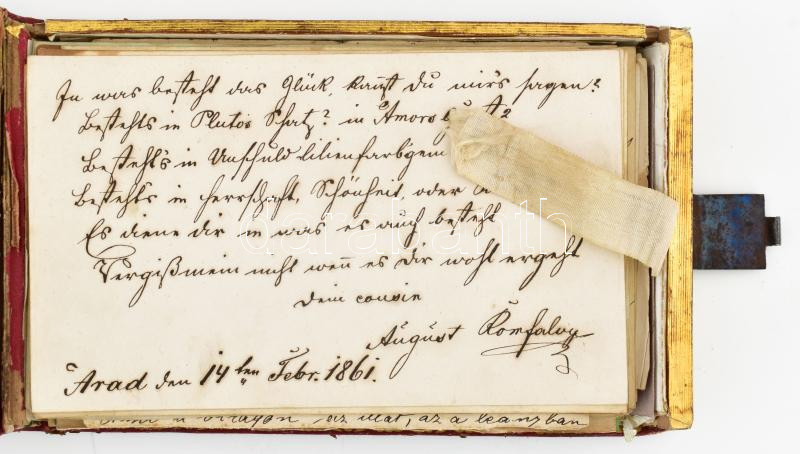 In was besteht das Glück, kannst du mir's sagen?
Besteht's in Plutos Schatz? in Amors
Besteht's in Unschuld lilienfarb'gem
Besteht's in Herrschaft, Schönheit, oder
Es diene dir in was es auch besteht
Vergißmein nicht weñ es Dir wohl ergeht
Dein cousin
August Römfalvy
Arad den 14ten Febr. 1861.
az a leanzban
darabanth